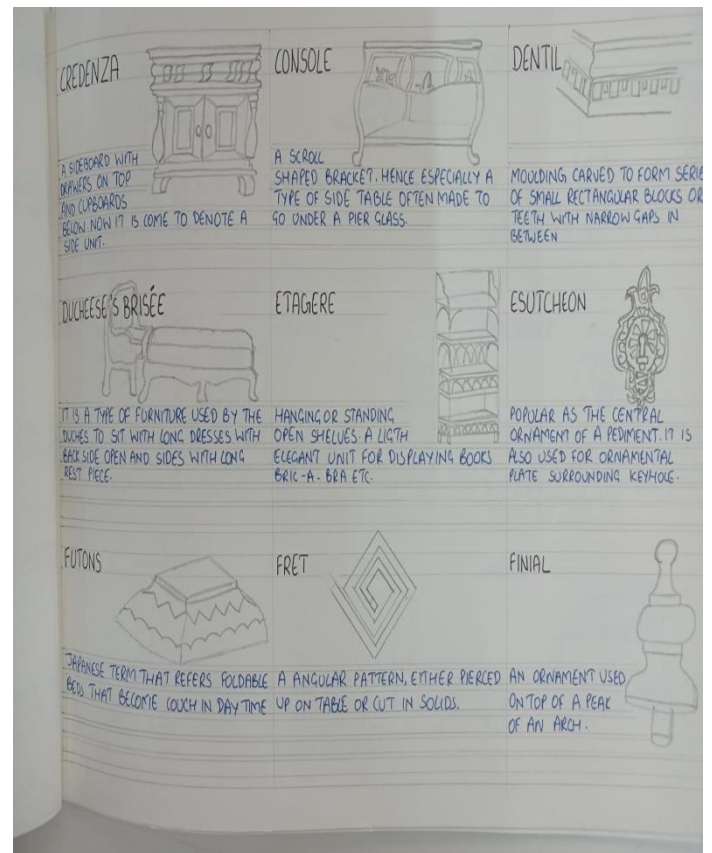 CREDENZA
A SIDEBOARD WITH
DRAWERS ON TOP
AND CUPBOARDS
BELOW NOW IT IS COME TO DENOTE A
SIDE UNIT.
CONSOLE
A SCROLL
SHAPED BRACKET. HENCE ESPECIALLY A
TYPE OF SIDE TABLE OFTEN MADE TO
GO UNDER A PIER GLASS.
DENTIL
MOULDING CARVED TO FORM SERIE
OF SMALL RECTANGULAR BLOCKS OR
TEETH WITH NARROW GAPS IN
BETWEEN
DUCHEESE'S BRISÉE
IT IS A TYPE OF FURNITURE USED BY THE
DUCHES TO SIT WITH LONG DRESSES WITH
BACK SIDE OPEN AND SIDES WITH LONG
REST PIECE.
ETAGERE
HANGING OR STANDING
OPEN SHELVES. A LIGTH
ELEGANT UNIT FOR DISPLAYING BOOKS
BRIC-A-BRA ETC.
ESUTCHEON
POPULAR AS THE CENTRAL
ORNAMENT OF A PEDIMENT. IT IS
ALSO USED FOR ORNAMENTAL
PLATE SURROUNDING KEYHOLE.
FUTONS
JAPANESE TERM THAT REFERS FOLDABLE
BEDS THAT BECOME COUCH IN DAY TIME
FRET
A ANGULAR PATTERN, EITHER PIERCED
UP ON TABLE OR CUT IN SOLIDS.
FINIAL
AN ORNAMENT USED
ON TOP OF A PEAK
OF AN ARCH.